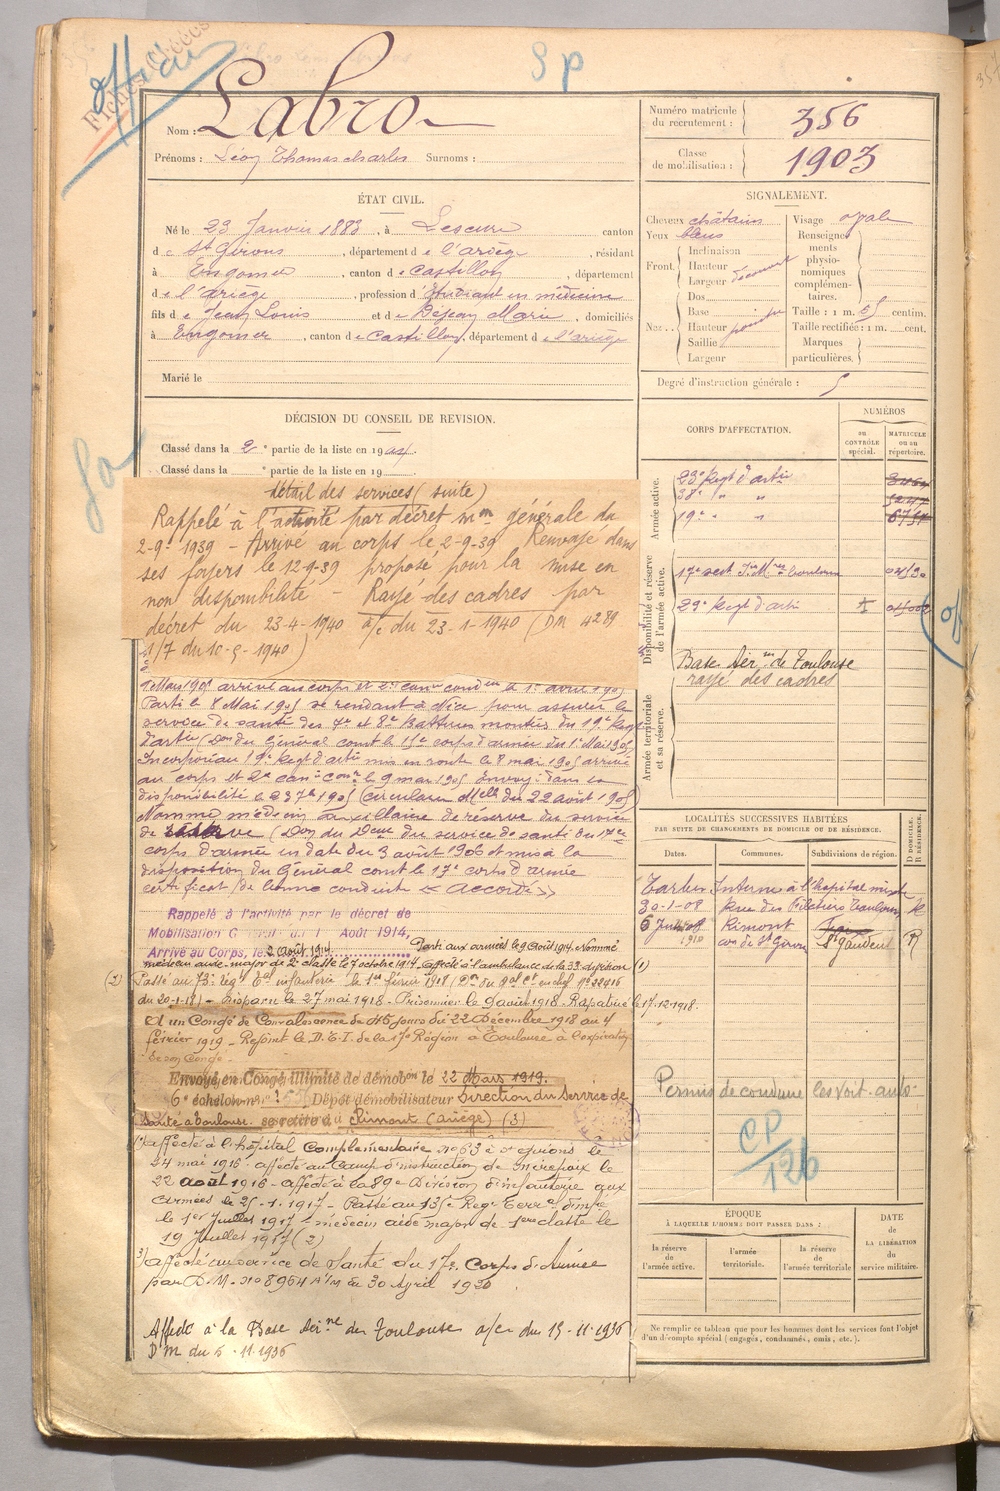 Officier
Fiches Créées
S P
Nom : Labro
Prénoms : Léon Thomas charles Surnoms :
Numéro matricule du recrutement : 356
Classe de mobilisation : 1903
ÉTAT CIVIL.
Né le 23 Janvier 1883, à Lescure canton
de St Girons, département de l'ariège, résidant
à Engomer, canton de Castillon, département
de l'ariège, profession d'étudiant en médecine
fils de Jean Louis et de Déjean Marie, domiciliés
à Engomer, canton de Castillon, département de l'ariège
Marié le
SIGNALEMENT.
Cheveux châtains
Yeux bleus
Front. Inclinaison
Hauteur
Largeur découvert
Nez. Dos
Base
Hauteur
Saillie
Largeur
Visage ovale
Renseignements physionomiques complémentaires.
Taille : 1 m. 51 centim.
Taille rectifiée : 1 m. cent.
Marques particulières.
Degré d'instruction générale : 5
DÉCISION DU CONSEIL DE REVISION.
Classé dans la 2e partie de la liste en 1904.
Classé dans la e partie de la liste en 19
détail des services (suite)
Rappelé à l'activité par décret mon générale du
2-9-1939 - Arrivé au corps le 2-9-39 Renvoyé dans
ses foyers le 12-9-39 proposé pour la mise en
non disponibilité - Rayé des cadres par
décret du 23-4-1940 a/c du 23-1-1940 (DM 4289
1/7 du 10-5-1940)
arrivé au corps et 2e canr condr le 1er avril 1905
Parti le 8 Mai 1905 se rendant à Nice pour assurer le
service de santé des 7e et 8e Batteries montées du 19e Regt
d'artie (Don du Général comt le 15e corps d'armée du 1er Mai 1905
Incorporé au 19e Regt d'artie mis en route le 8 mai 1905 arrivé
au corps et 2e can: condr le 9 mai 1905 Envoyé dans la
disponibilité le 23 7bre 1905 (circulaire Melle du 22 août 1905)
Nommé médecin auxilliaire de réserve du service
de (Don du Deur du service de santé du 17e
corps d'armée en date du 3 août 1906 et mis à la
disposition du Général comt le 17e corps d'armée
certificat de bonne conduite « Accordé »
Rappelé à l'activité par le décret de
Mobilisation Générale du 1 Août 1914,
Arrivé au Corps, le 2 Août 1914. Parti aux armées le 9 août 1914. Nommé
médecin aide-major de 2e classe le 7 octobre 1914. affecté à l'ambulance de la 33e division (1)
(2) Passé au 73e régt d'infanterie le 1er février 1918 (Dn du Gal Ct en chef no 22416
du 20-1-18) - Disparu le 27 mai 1918 - Prisonnier le 9 août 1918 - Rapatrié le 17.12.1918.
a un Congé de Convalescence de 45 jours du 22 Décembre 1918 au 4
février 1919 - Rejoint le D.E.I. de la 17e Région à Toulouse à l'expiration
de son congé -
Envoyé en Congé illimité de démobon le 22 Mars 1919.
6e échelon no 356 Dépôt démobilisateur Direction du Service de
Santé à Toulouse. se retire à Rimont (Ariège) (3)
(1) affecté à l'hôpital Complémentaire no 63 à St girons le
24 mai 1916 - affecté au Camp d'instruction de mirepoix le
22 août 1916 - affecté à la 89e Division d'infanterie aux
armées le 25-1-1917 - Passé au 135e Regt Terral d'infie
le 1er Juillet 1917 - médecin aide major de 1ère classe le
19 Juillet 1917 (2)
3) affecté au service de Santé du 17e Corps d'Armée
par D.M. no 8964 A/M du 30 Avril 1920
Affecté à la Base Aérne de Toulouse a/c du 15-11-1936
D.M. du 5-11-1936
CORPS D'AFFECTATION.
NUMÉROS
au CONTRÔLE spécial.
MATRICULE ou au répertoire.
Armée active.
23e Regt d'artie
38e " "
19e " "
Disponibilité et réserve de l'armée active.
17e sect. Toulouse
23e Regt d'artie
Base Aérne de Toulouse
rayé des cadres
Armée territoriale et sa réserve.
LOCALITÉS SUCCESSIVES HABITÉES
PAR SUITE DE CHANGEMENTS DE DOMICILE OU DE RÉSIDENCE.
Dates. Communes. Subdivisions de région. D DOMICILE. R RÉSIDENCE.
Tarbes Interne à l'hôpital mixte
30-1-08 Rue des Filatiers Toulouse R
1910 Rimont con de St Girons St Gaudens R
Permis de conduire les voit. auto-
CP
126
ÉPOQUE
À LAQUELLE L'HOMME DOIT PASSER DANS :
la réserve de l'armée active.
l'armée territoriale.
la réserve de l'armée territoriale
DATE de LA LIBÉRATION du service militaire.
Ne remplir ce tableau que pour les hommes dont les services font l'objet
d'un décompte spécial (engagés, condamnés, omis, etc.).